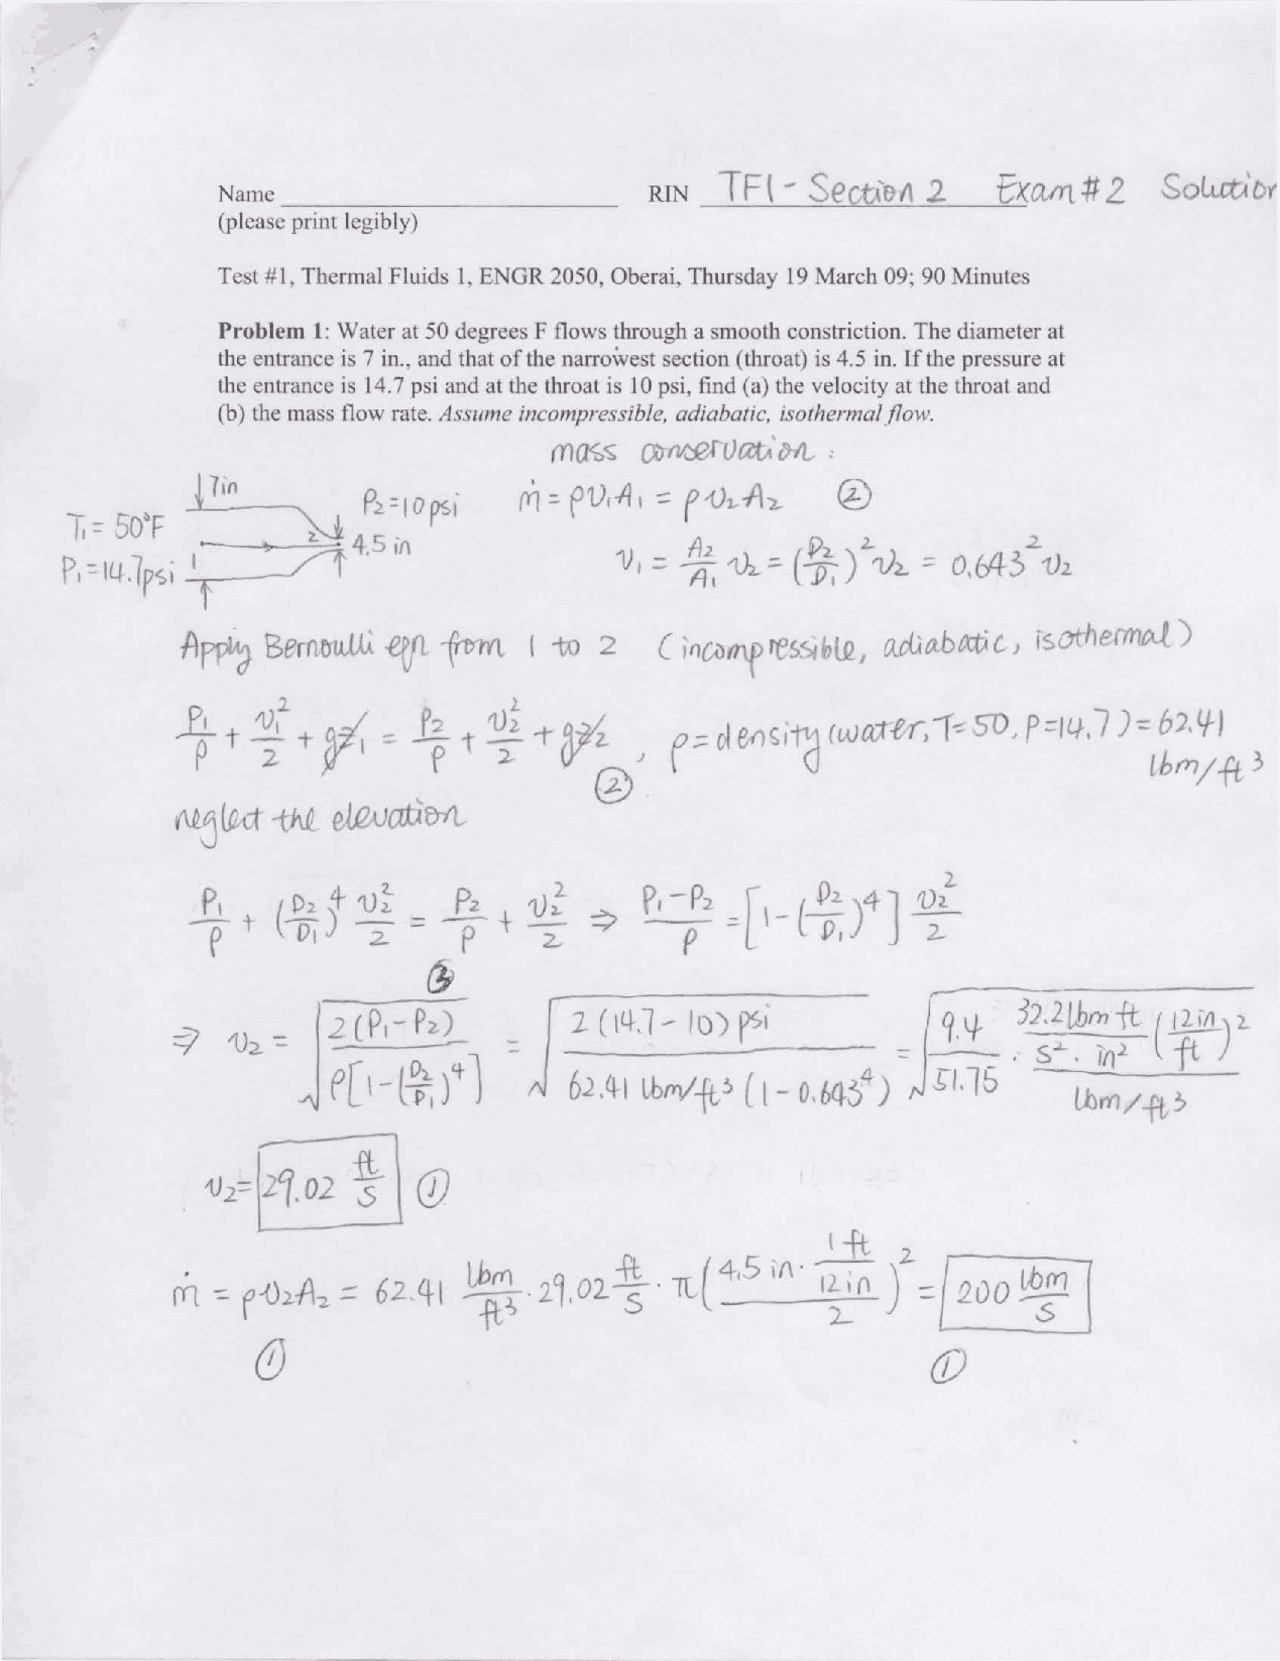 Name
RIN TF1 - Section 2 Exam # 2 Solution
(please print legibly)
Test #1, Thermal Fluids 1, ENGR 2050, Oberai, Thursday 19 March 09; 90 Minutes
Problem 1: Water at 50 degrees F flows through a smooth constriction. The diameter at
the entrance is 7 in., and that of the narrowest section (throat) is 4.5 in. If the pressure at
the entrance is 14.7 psi and at the throat is 10 psi, find (a) the velocity at the throat and
(b) the mass flow rate. Assume incompressible, adiabatic, isothermal flow.
mass conservation :
7in
P₂=10psi
ṁ = ρv₁A₁ = ρv₂A₂ ②
T₁= 50°F
2
4.5 in
P₁=14.7psi 1
v₁ = A₂/A₁ v₂ = (D₂/D₁)² v₂ = 0.643² v₂
Apply Bernoulli eqn from 1 to 2 (incompressible, adiabatic, isothermal)
P₁/ρ + v₁²/2 + gz₁ = P₂/ρ + v₂²/2 + gz₂ , ρ = density (water, T=50, P=14.7) = 62.41
lbm/ft³
②
neglect the elevation
P₁/ρ + (D₂/D₁)⁴ v₂²/2 = P₂/ρ + v₂²/2 ⇒ P₁-P₂/ρ = [1-(D₂/D₁)⁴] v₂²/2
③
⇒ v₂ = √(2(P₁-P₂)/ρ[1-(D₂/D₁)⁴]) = √(2(14.7-10) psi/62.41 lbm/ft³ (1-0.643⁴)) = √(9.4/51.75 · 32.2 lbm ft/s²·in² (12in/ft)²/lbm/ft³)
v₂= 29.02 ft/s ①
ṁ = ρv₂A₂ = 62.41 lbm/ft³ · 29.02 ft/s · π(4.5 in · 1ft/12in/2)² = 200 lbm/s
① ①